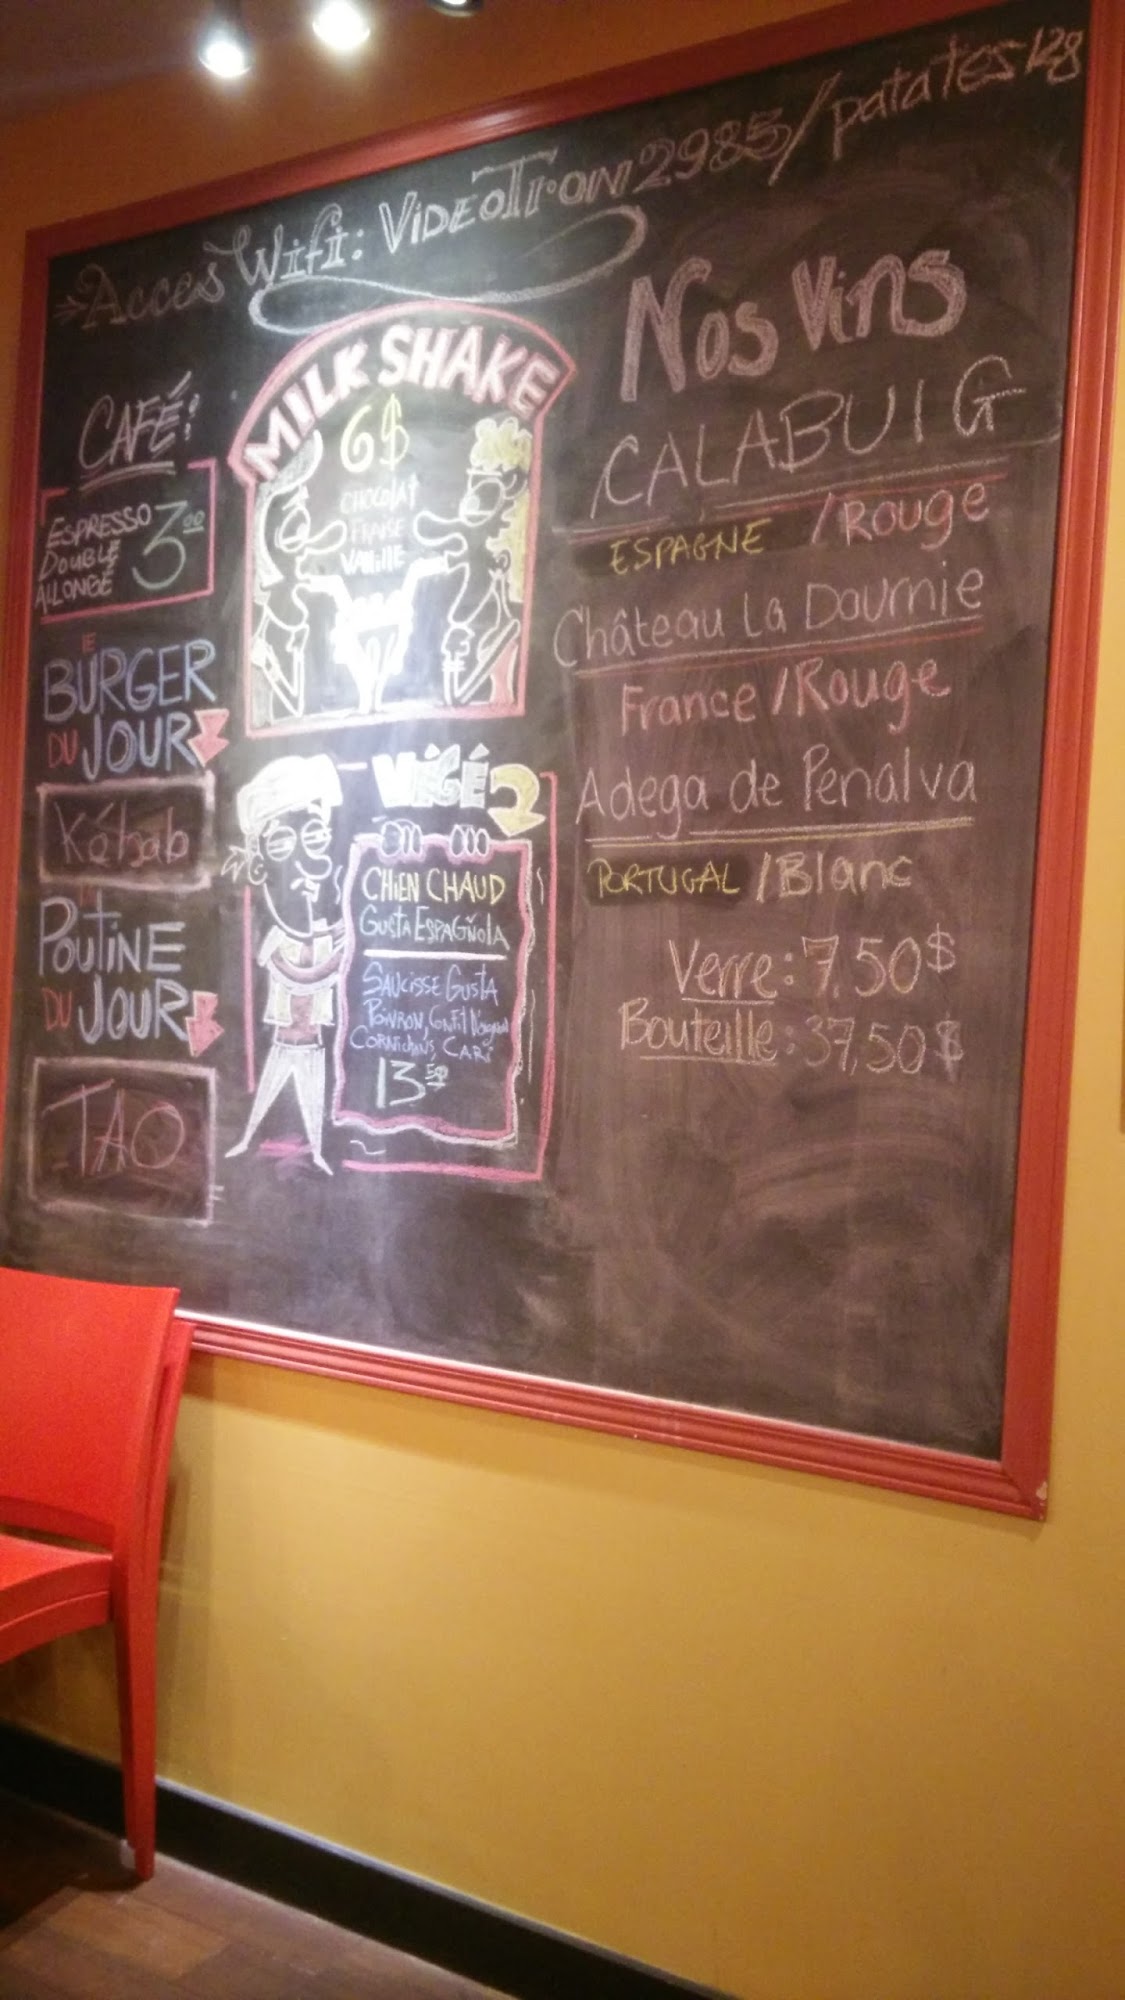 Acces Wifi: VIDEOTRON2985/patates128
CAFÉ:
ESPRESSO
DOUBLE
ALLONGÉ
3.00
LE
BURGER
DU JOUR
Kébab
LA
POUTINE
DU JOUR
TAO
MILK SHAKE
6$
CHOCOLAT
FRAISE
VANILLE
VÉGÉ
CHIEN CHAUD
GUSTA ESPAGÑOLA
SAUCISSE GUSTA
POIVRON, CONFIT D'OIGNON
CORNICHONS, CARI
13.50
Nos Vins
CALABUIG
ESPAGNE /Rouge
Château La Dournie
France/Rouge
Adega de Penalva
PORTUGAL /Blanc
Verre: 7.50$
Bouteille: 37,50$